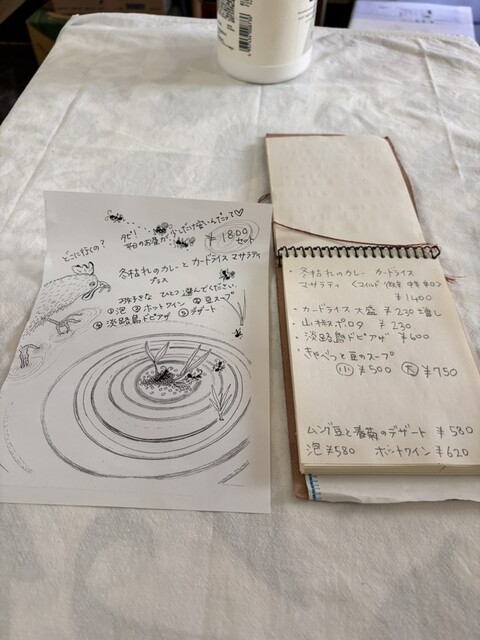 どこに行くの？
タビ！
平日のお昼が少しだけ安いんだって♡
¥1800
セット
冬枯れのカレーと カードライス マサラティ
プラス
お好きな ひとつ 選んでください
①泡 ②ホットワイン ④豆スープ
③淡路島ドピアザ ⑤デザート
・冬枯れのカレー カードライス
マサラティ
¥1400
・カードライス大盛 ¥230増し
・山椒ポロタ ¥230
・淡路島ドピアザ ¥600
・きゃべつと豆のスープ
小 ¥500 大 ¥750
ムング豆と春菊のデザート ¥580
泡 ¥580 ホットワイン ¥620